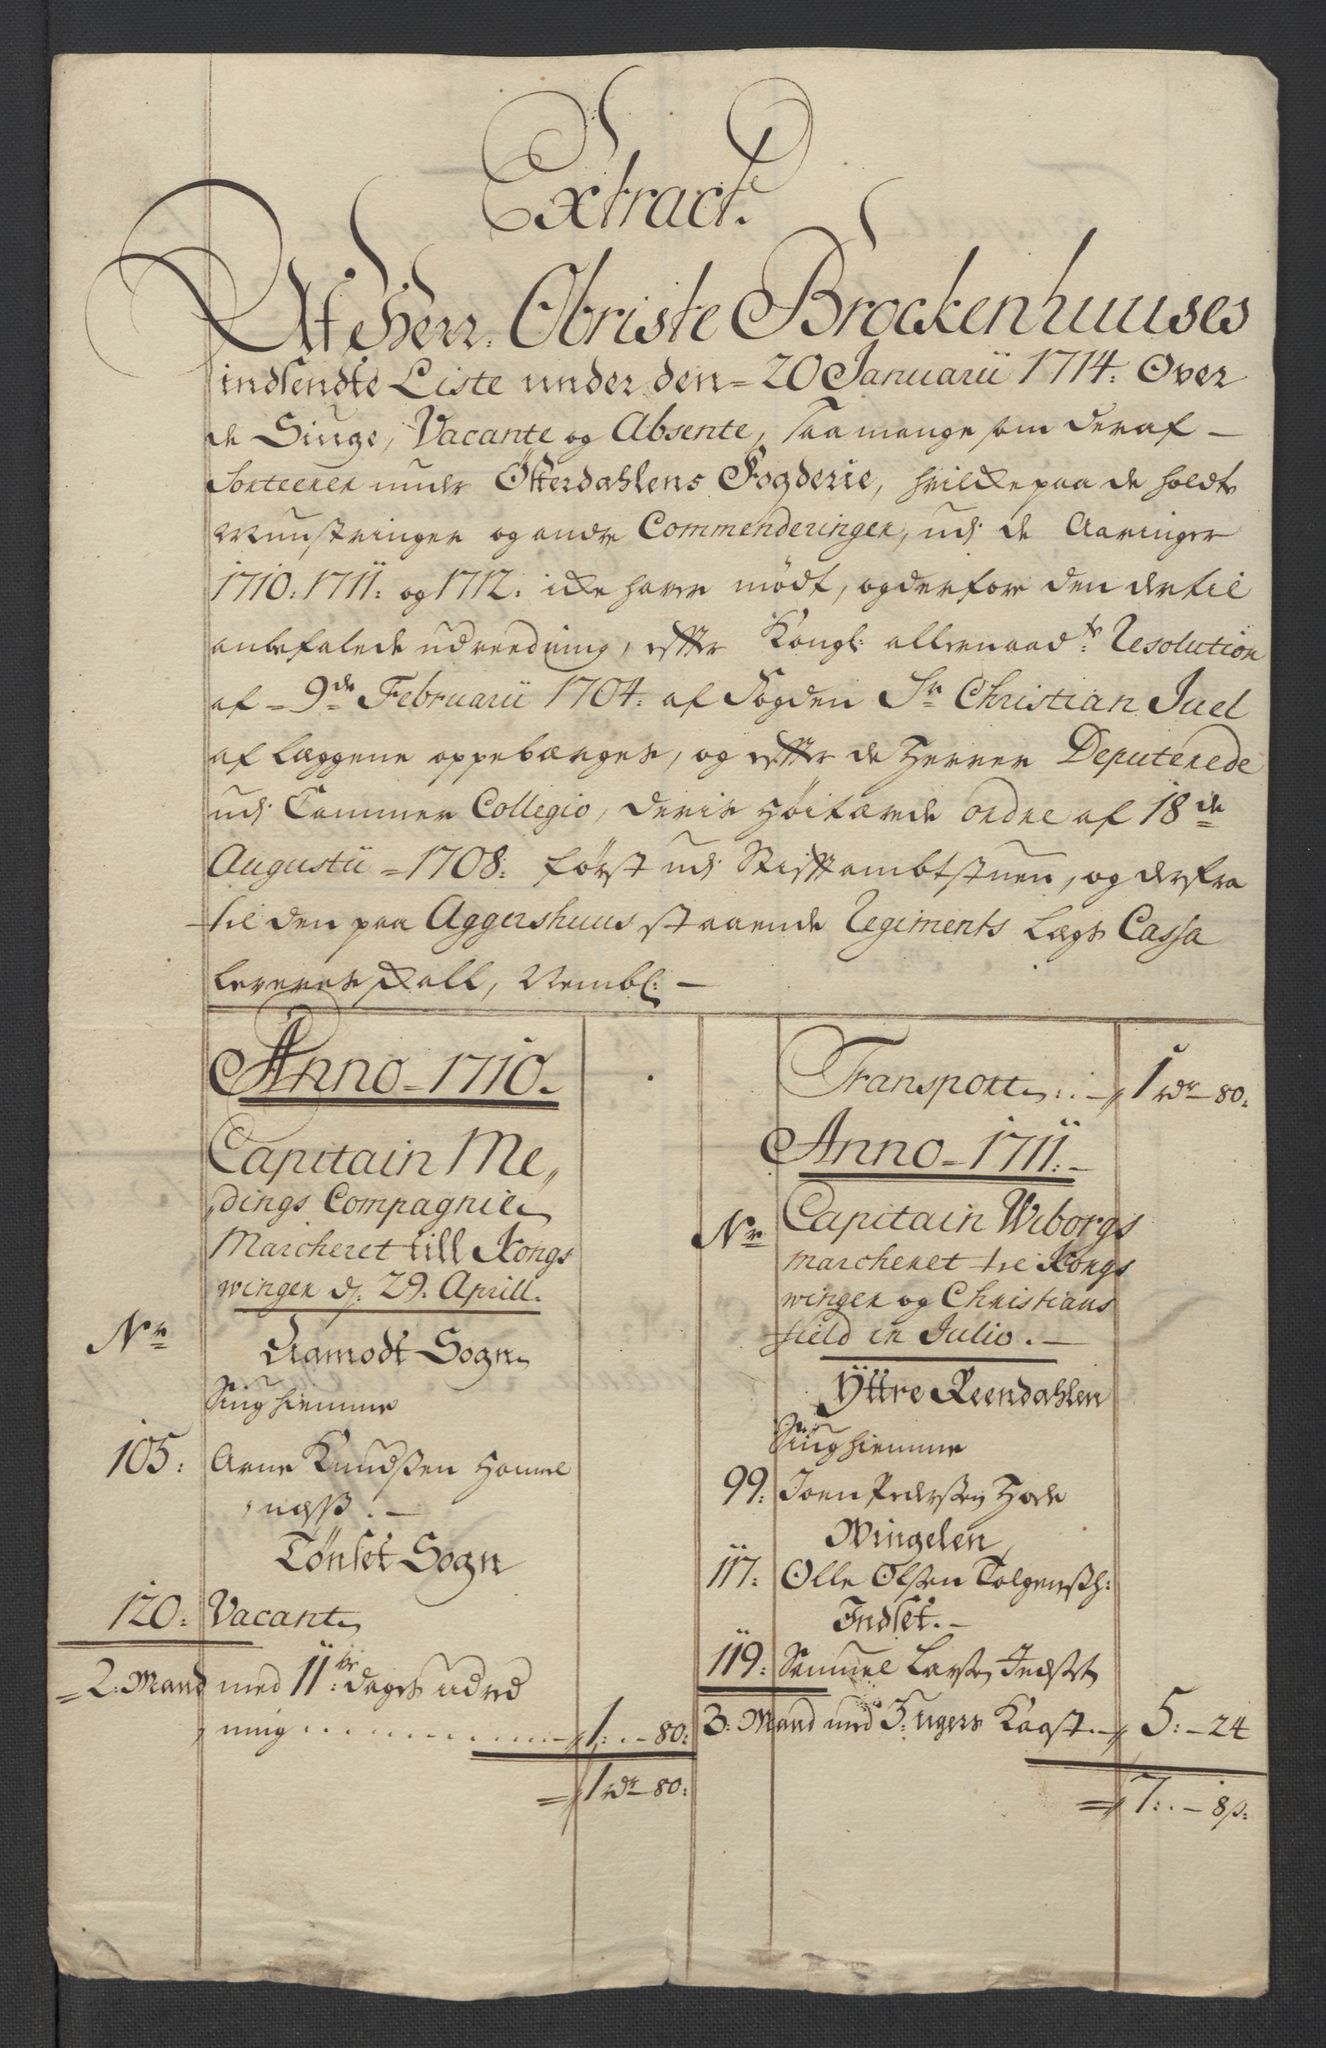 Extract.
Af Herr. Obriste Brockenhuuses
indsendte Liste under den = 20 Januarii 1714. Over
de Siuge, Vacante og Absente, saa mange som deraf -
Sorterer under Østerdahlens Fogderie, hvilke paa de holdte
Munstringer og andre Commenderinger, udj de Aaringer
1710. 1711. og 1712. icke haver mødt, og derfore den der til
anbefalede udreedning, efter Kongl: allernaadte: Resolution
af = 9de Februarii 1704. af Fogden Sr Christian Juel
af Læggene oppebærges, og efter de Herrer Deputerede
udj Cammer Collegio, deris Høitærede ordre af 18de
Augustii = 1708: først udj Stiftambtstuen, og derfra
til den paa Aggershuus staaende Regiments Lægs Cassa
leveres skall, Nembl: -
Anno = 1710.
Capitain Me,,
dings Compagnie
Marcheret till Kongs
winger d: 29. Aprill.
Nr
Aamodt Sogn
Siug hiemme
105: Arne Knudsen Hamel
næss. -
Tønset Sogn
120: Vacant
= 2: Mand med 11 te: dages udred
ning ........ 1: - 80:
= 1 rdr 80:
Transport : - 1 rdr 80:
Anno = 1711: -
Nr Capitain Wiborgs
marcheret til Kongs
winger og Christians
field in Julio. -
Yttre Reendahlen
Siug hiemme
99: Joen Pedersen Hode
Wingelen
117: Olle Olsen Tolgensh:
Indset. -
119: Samuel Larsen Indset
3: Mand med 3: ugers Kaast - 5: - 24
= 7: - 8 s: